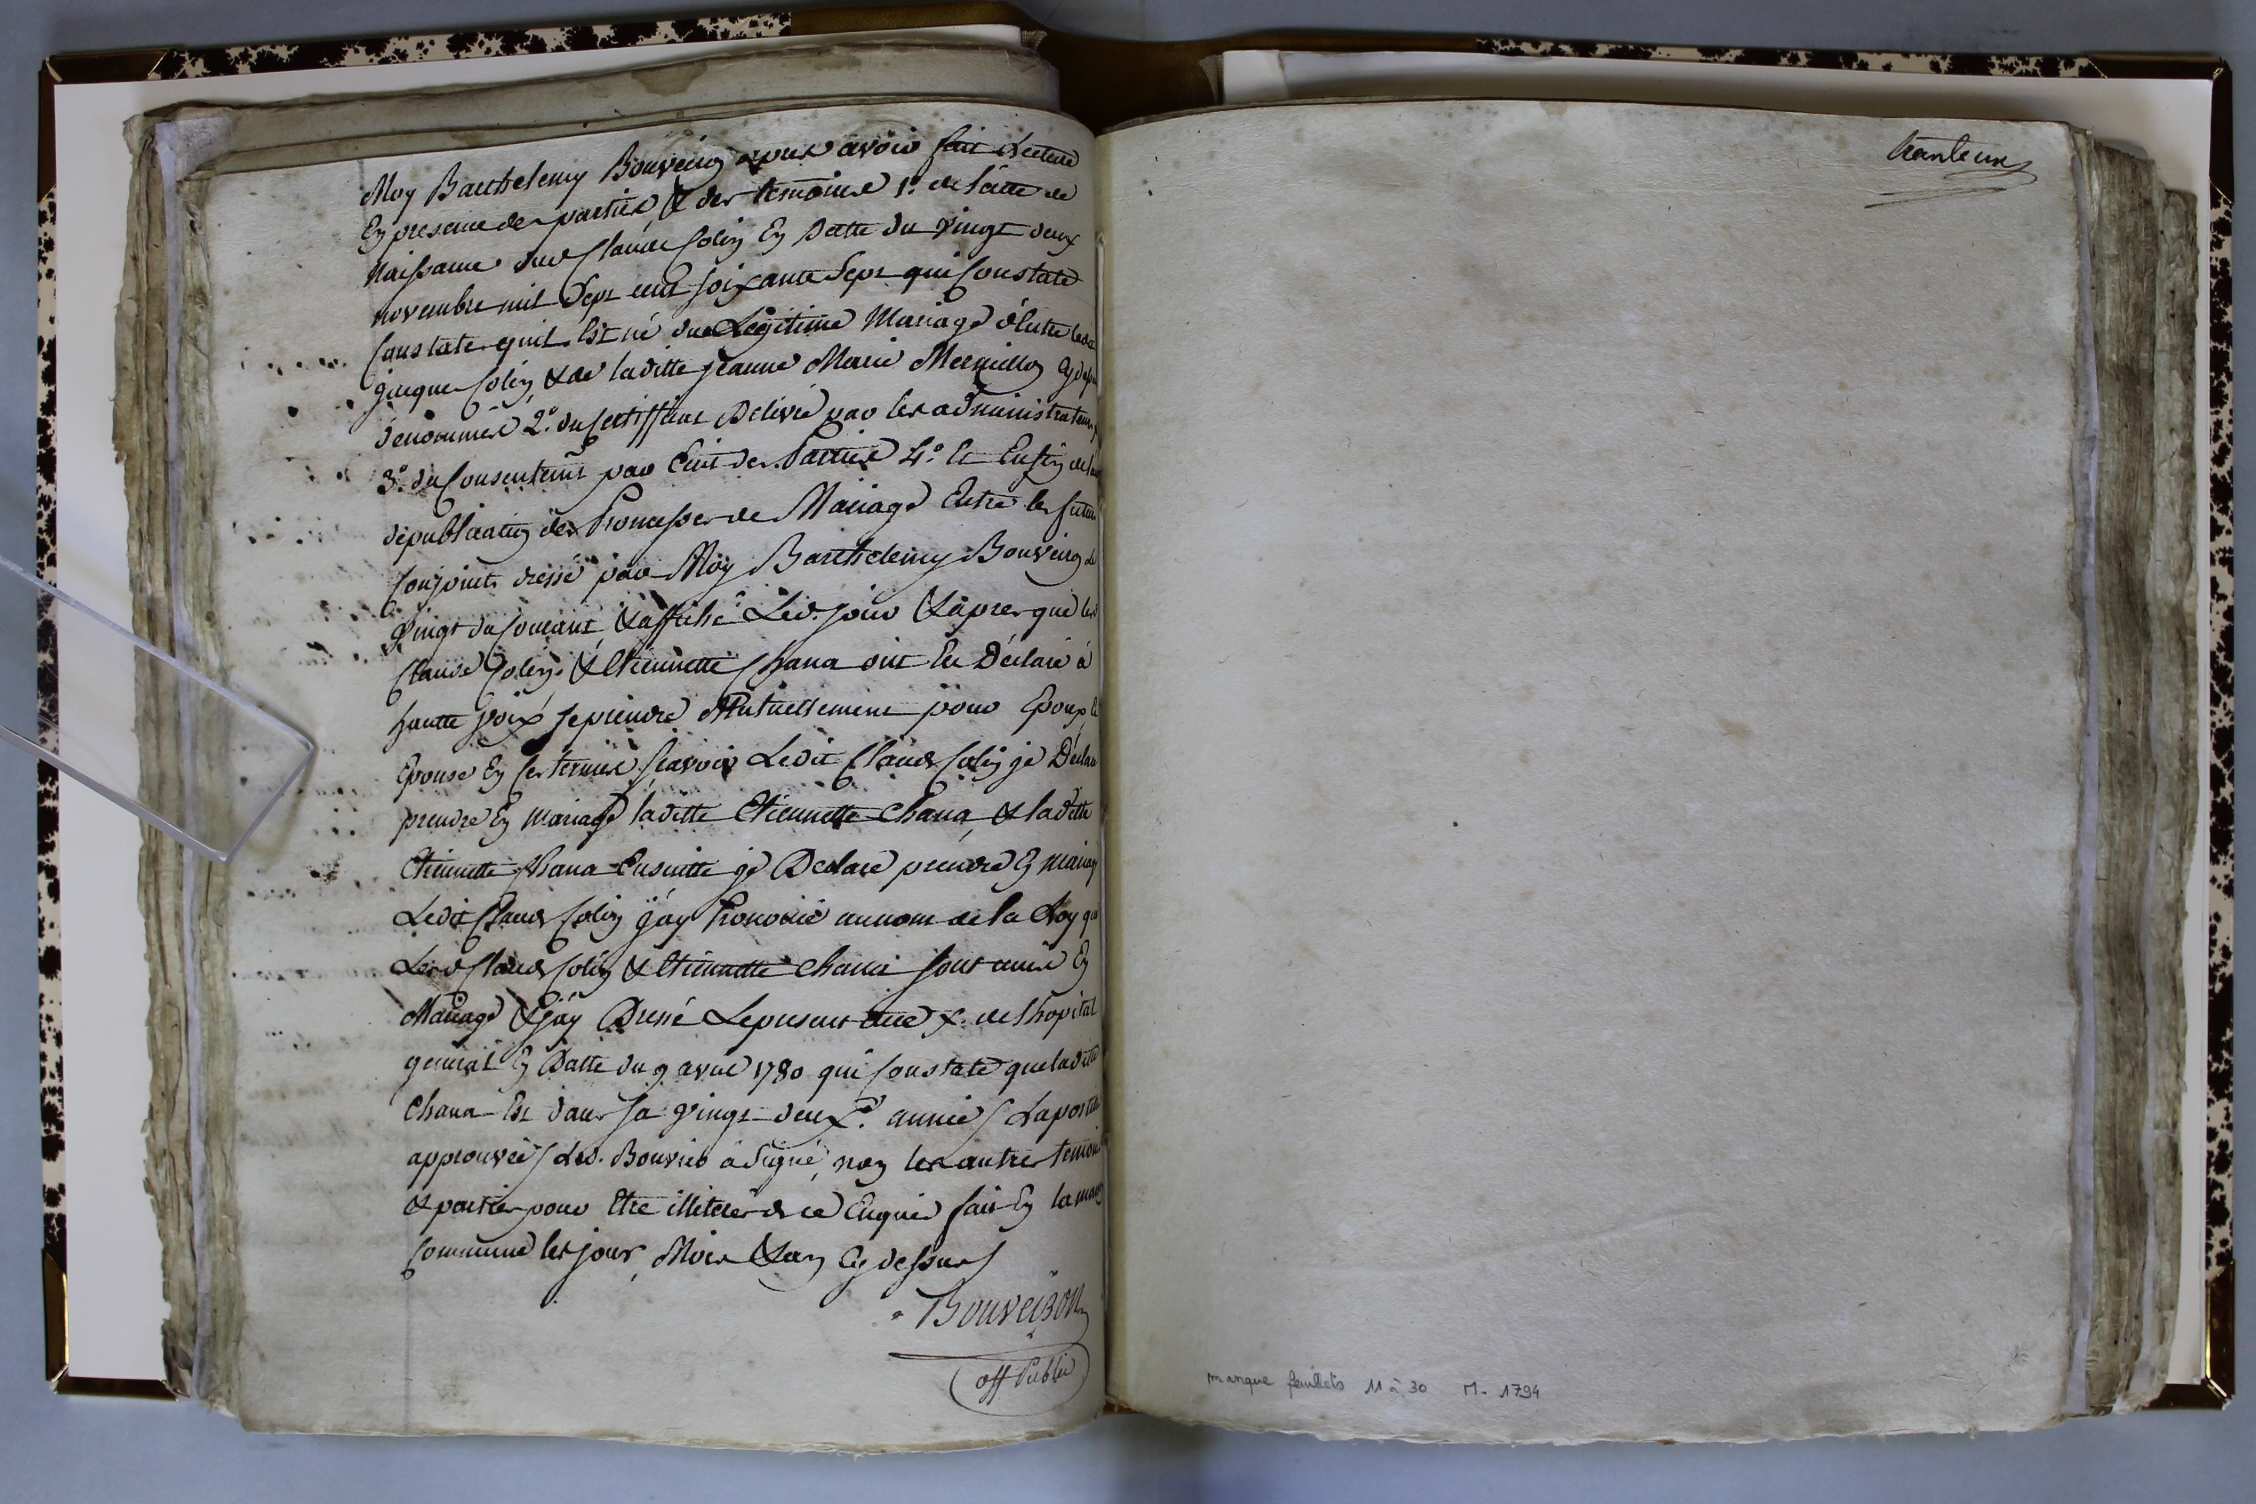 Moy Barthelemy Bouveiron apres avoir fait Lecture
En presence des parties, & des temoins 1.º de l'atte de
naissance dud Claude Colin En Datte du vingt deux
novembre mil Sept cent soixante Sept qui Constate
Constate quil Est né du Legitime Mariage d'Entre led
Jacque Colin, & de laditte Jeanne Marie Mermillon Cy dessus
denommés 2.º du Certifficat Delivré par les administrateurs
3.º du Consentemt par Ecrit des Parties 4.º Et Enfin de l'acte
de publication des Promesses de Mariage Entre les futurs
Conjoints dressé par Moy Barthelemy Bouveiron le
vingt du Courant, & affiché Led. jour & apres que lesd
Claude Colin, & Etiennette Chana ont Eu Déclaré à
haute voix se prendre Mutuellement pour Epoux &
Epouse En Ces termes Scavoir Ledit Claude Colin je Déclare
prendre En mariage laditte Etiennette Chana, & laditte
Etiennette Chana Ensuitte je Declare prendre En mariage
Ledit Claude Colin j'ay Prononcé au nom de la Loy que
Lesd Claude Colin & Etiennette Chana sont unis En
Mariage & j'ay Dressé Le present acte x. de l'hopital
general En Datte du 9 avril 1780 qui Constate que laditte
Chana Est dans sa vingt deux.e année / La postille
approuvée / Led. Bouvier à Signé, non les autres temoins
& parties pour Etre illiteré de ce Enquis fait En la maison
Commune les jour, Mois & an Cy dessus /
Bouveiron
off Public
manque feuillets 11 à 30 M. 1794